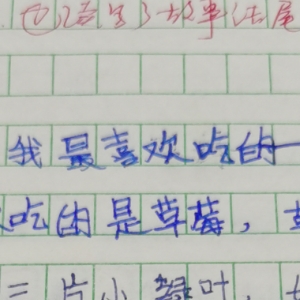 故事结尾
我最喜欢吃的
吃的是草莓，
三片小绿叶，